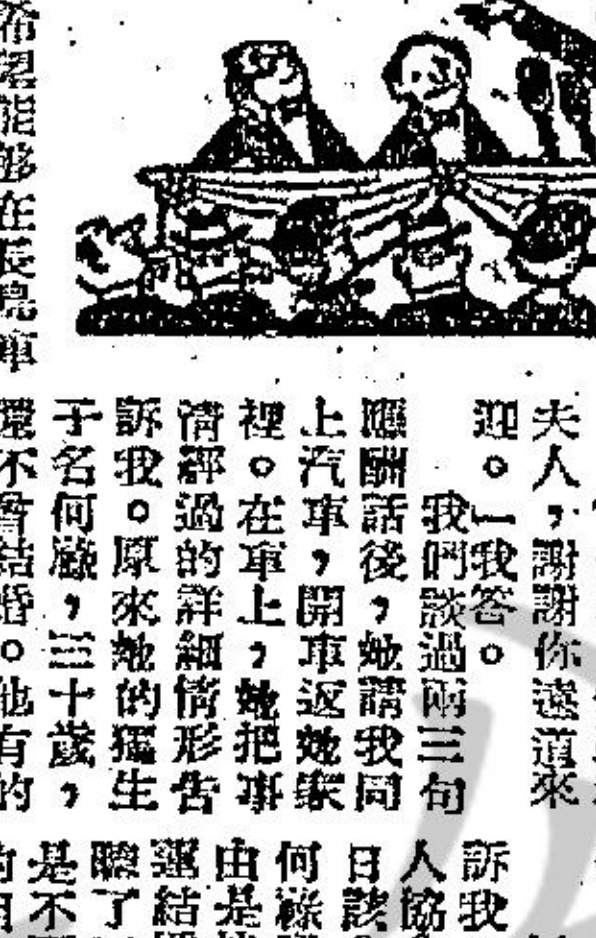 夫人，謝謝你遠道來
迎。」我答。
我們談過兩三句
應酬話後，她請我同
上汽車，開車返她家
裡。在車上，她把事
情經過的詳細情形告
訴我。原來她的獨生
子名何巖，三十歲，
還不曾結婚。他有的
希望能够在長島車
訴我
人協
日該
何
由是
運結
聽了
是不